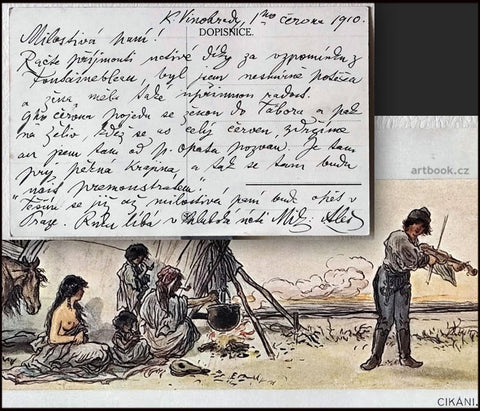 K. Vinohrady, 1ho června 1910.
DOPISNICE.
Milostivá paní!
Račte přijmouti uctivé díky za vzpomínku z
Fontainebleau, byl jsem nesmírně potěšen
a žena měla také upřímnou radost.
června pojedu se ženou do Tábora a pak
na Želiv, kdež se as celý červen, zdržíme
an jsem tam od p. Opata pozván. Je tam
prý pěkná krajina, a tak se tam budu
premonstrátem!
Těším se již až milostivá paní bude opět v
Praze. Ruku líbá v úctě Mik: Aleš
artbook.cz
CIKÁNI.